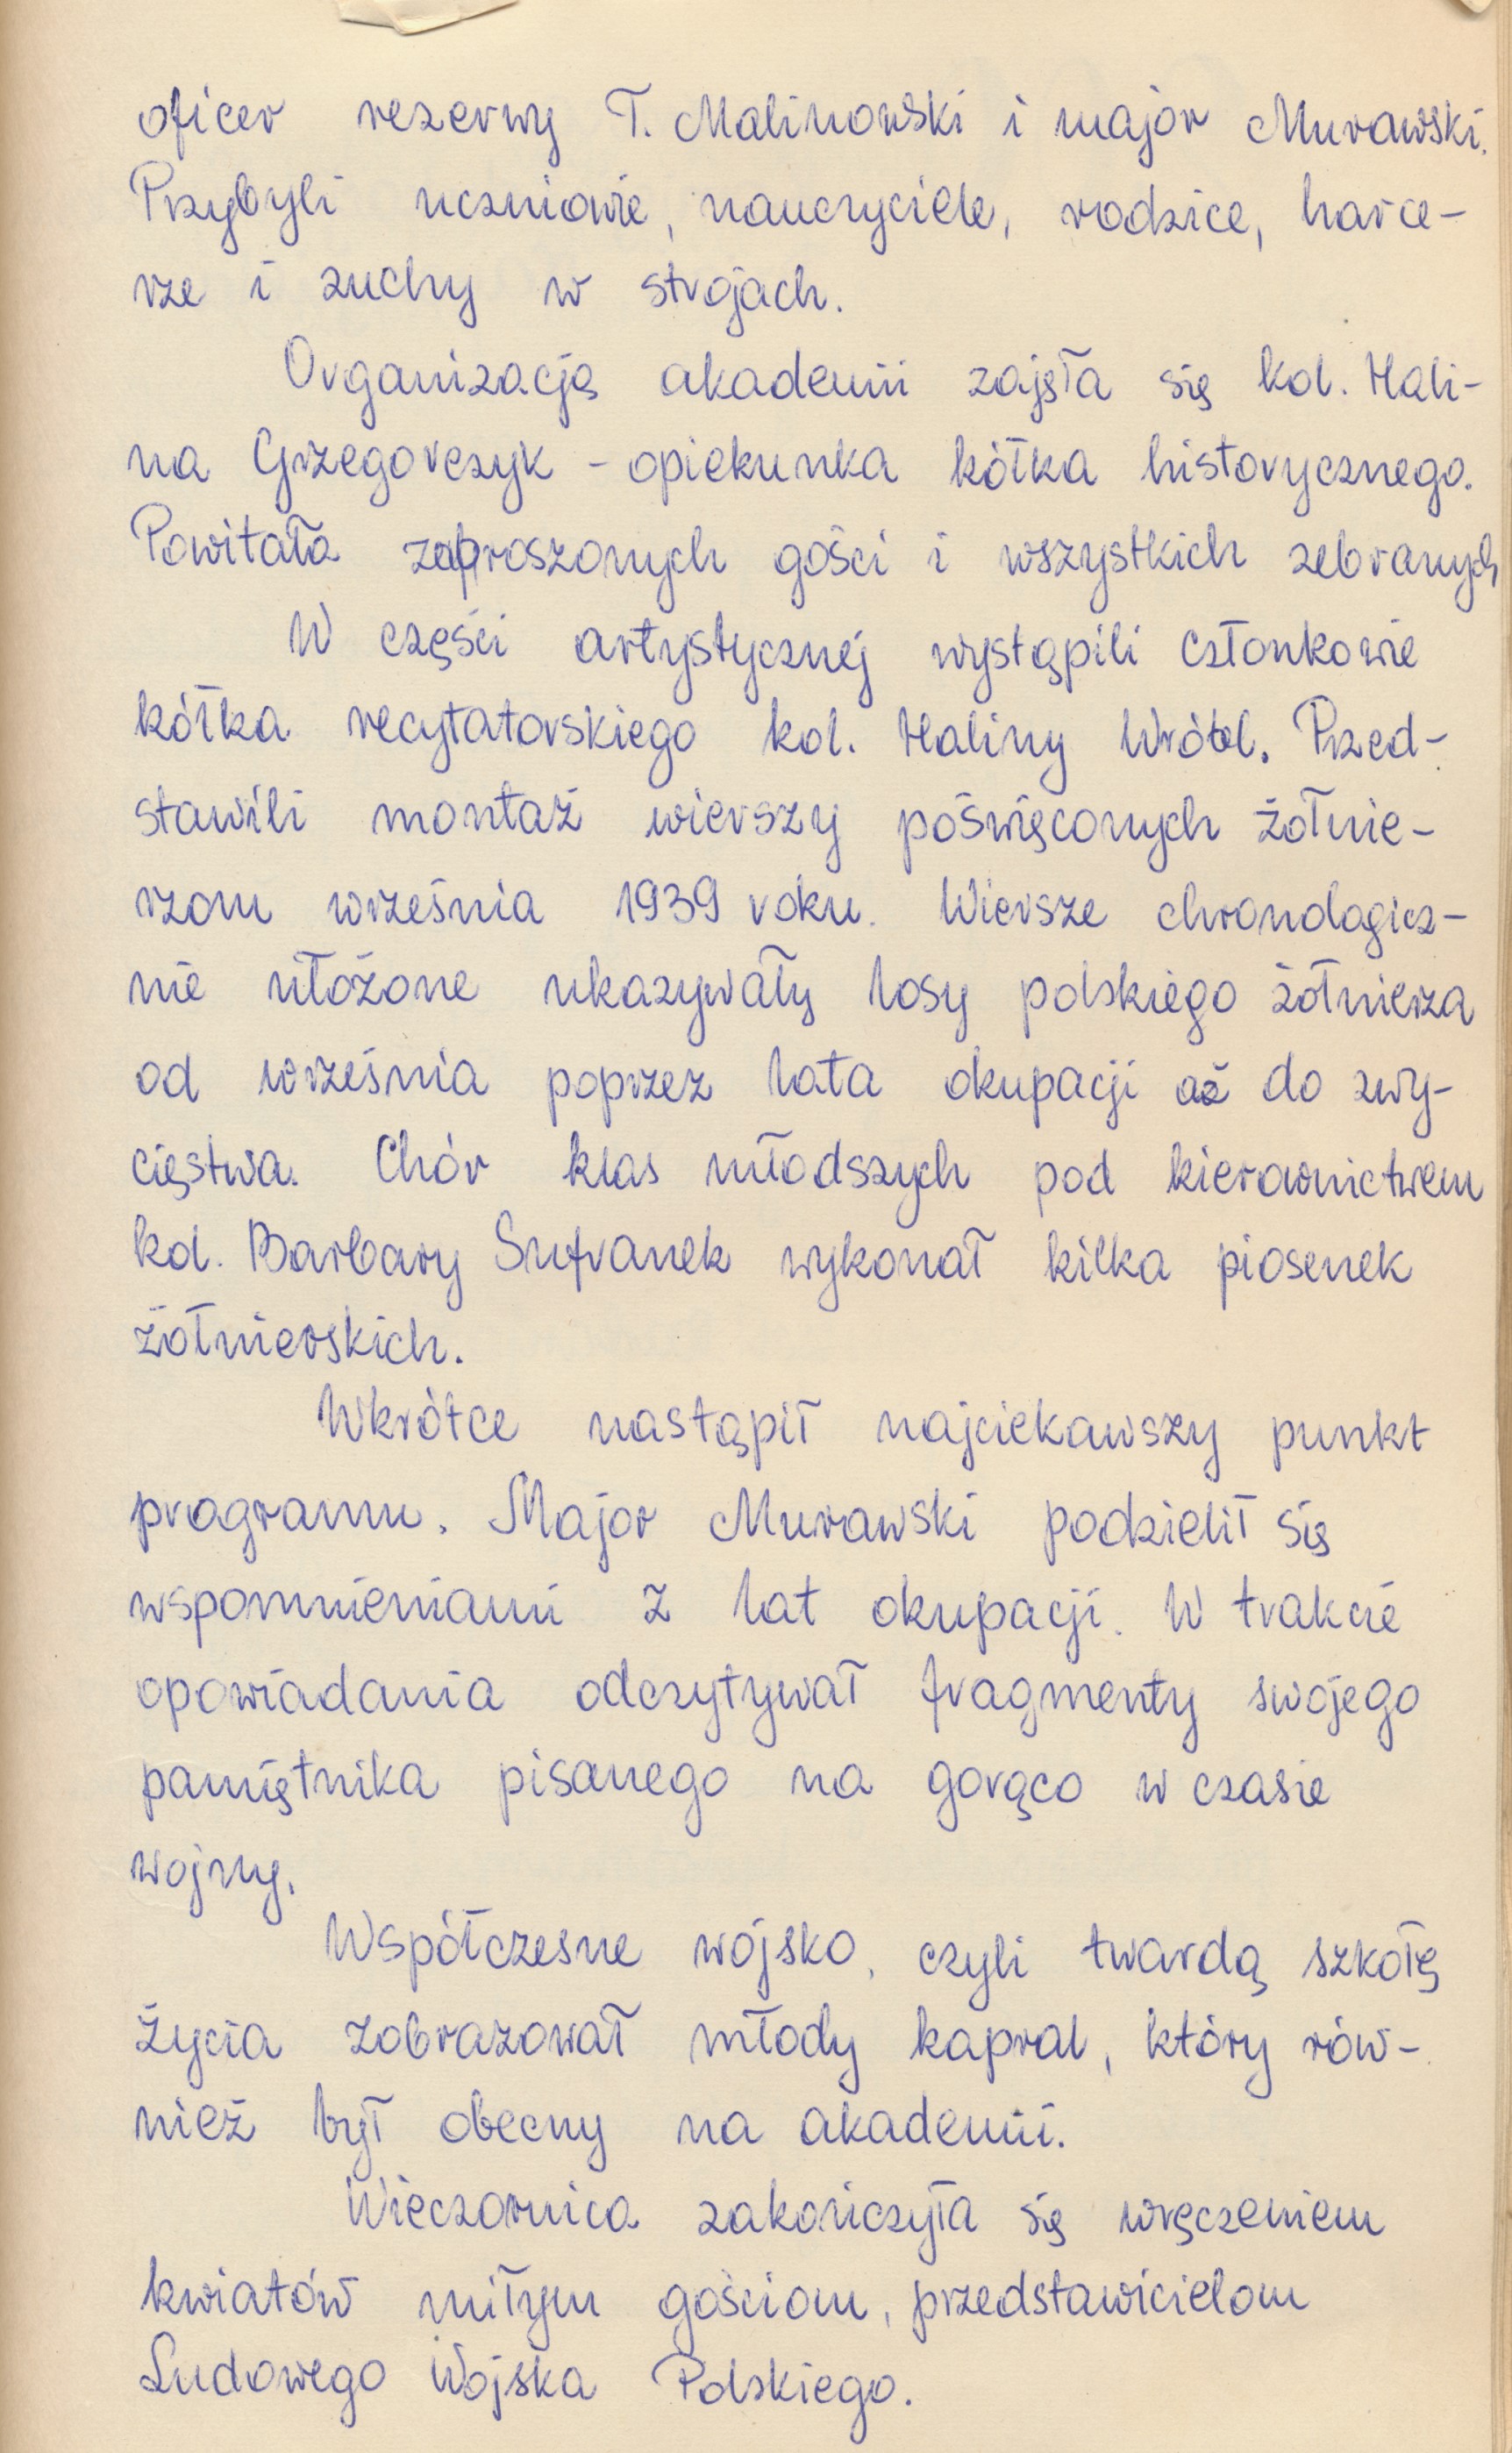 oficer rezerwy T. Malinowski i major Murawski.
Przybyli uczniowie, nauczyciele, rodzice, harce-
rze i zuchy w strojach.
Organizacją akademii zajęła się kol. Hali-
na Grzegorczyk - opiekunka kółka historycznego.
Powitała zaproszonych gości i wszystkich zebranych
W części artystycznej wystąpili członkowie
kółka recytatorskiego kol. Haliny Wróbel. Przed-
stawili montaż wierszy poświęconych żołnie-
rzom września 1939 roku. Wiersze chronologicz-
nie ułożone ukazywały losy polskiego żołnierza
od września poprzez lata okupacji aż do zwy-
cięstwa. Chór klas młodszych pod kierownictwem
kol. Barbary Sufranek wykonał kilka piosenek
żołnierskich.
Wkrótce nastąpił najciekawszy punkt
programu. Major Murawski podzielił się
wspomnieniami z lat okupacji. W trakcie
opowiadania odczytywał fragmenty swojego
pamiętnika pisanego na gorąco w czasie
wojny.
Współczesne wojsko, czyli twardą szkołę
życia zobrazował młody kapral, który rów-
nież był obecny na akademii.
Wieczornica zakończyła się wręczeniem
kwiatów miłym gościom, przedstawicielom
Ludowego Wojska Polskiego.